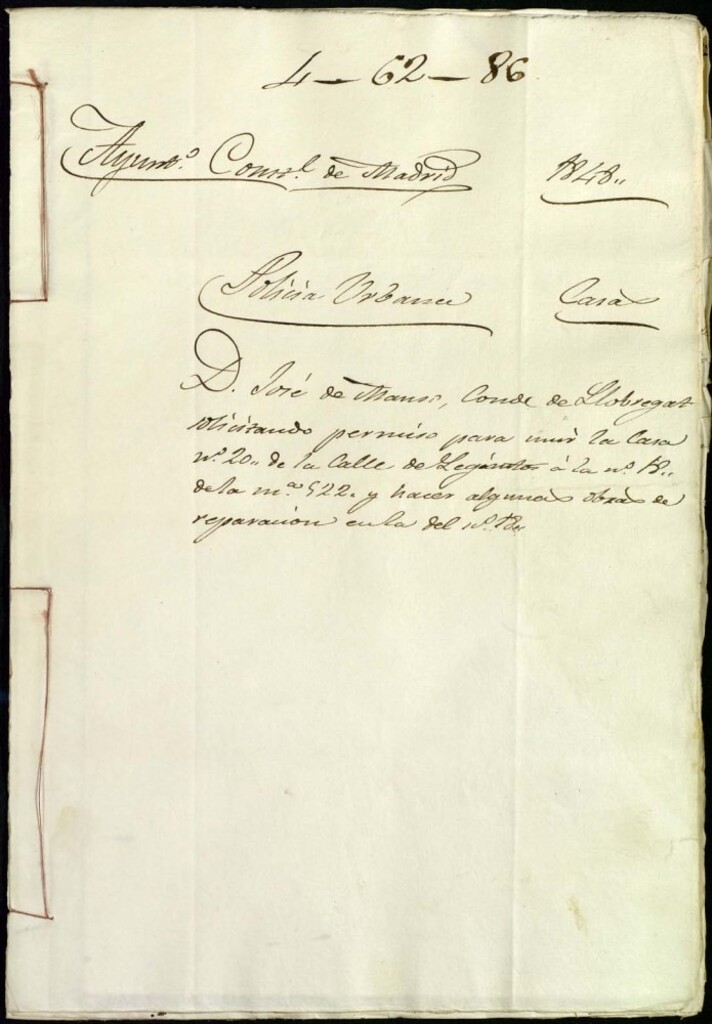 4-62-86
Ayunt.º Const.l de Madrid 1848..
Policia Urbana Casa
D. José de Manso, Conde de Llobregat
solicitando permiso para unir la Casa
nº 20.. de la Calle de Leganitos á la nº 18..
de la m.ª 522. y hacer algunas obras de
reparacion en la del nº 18..